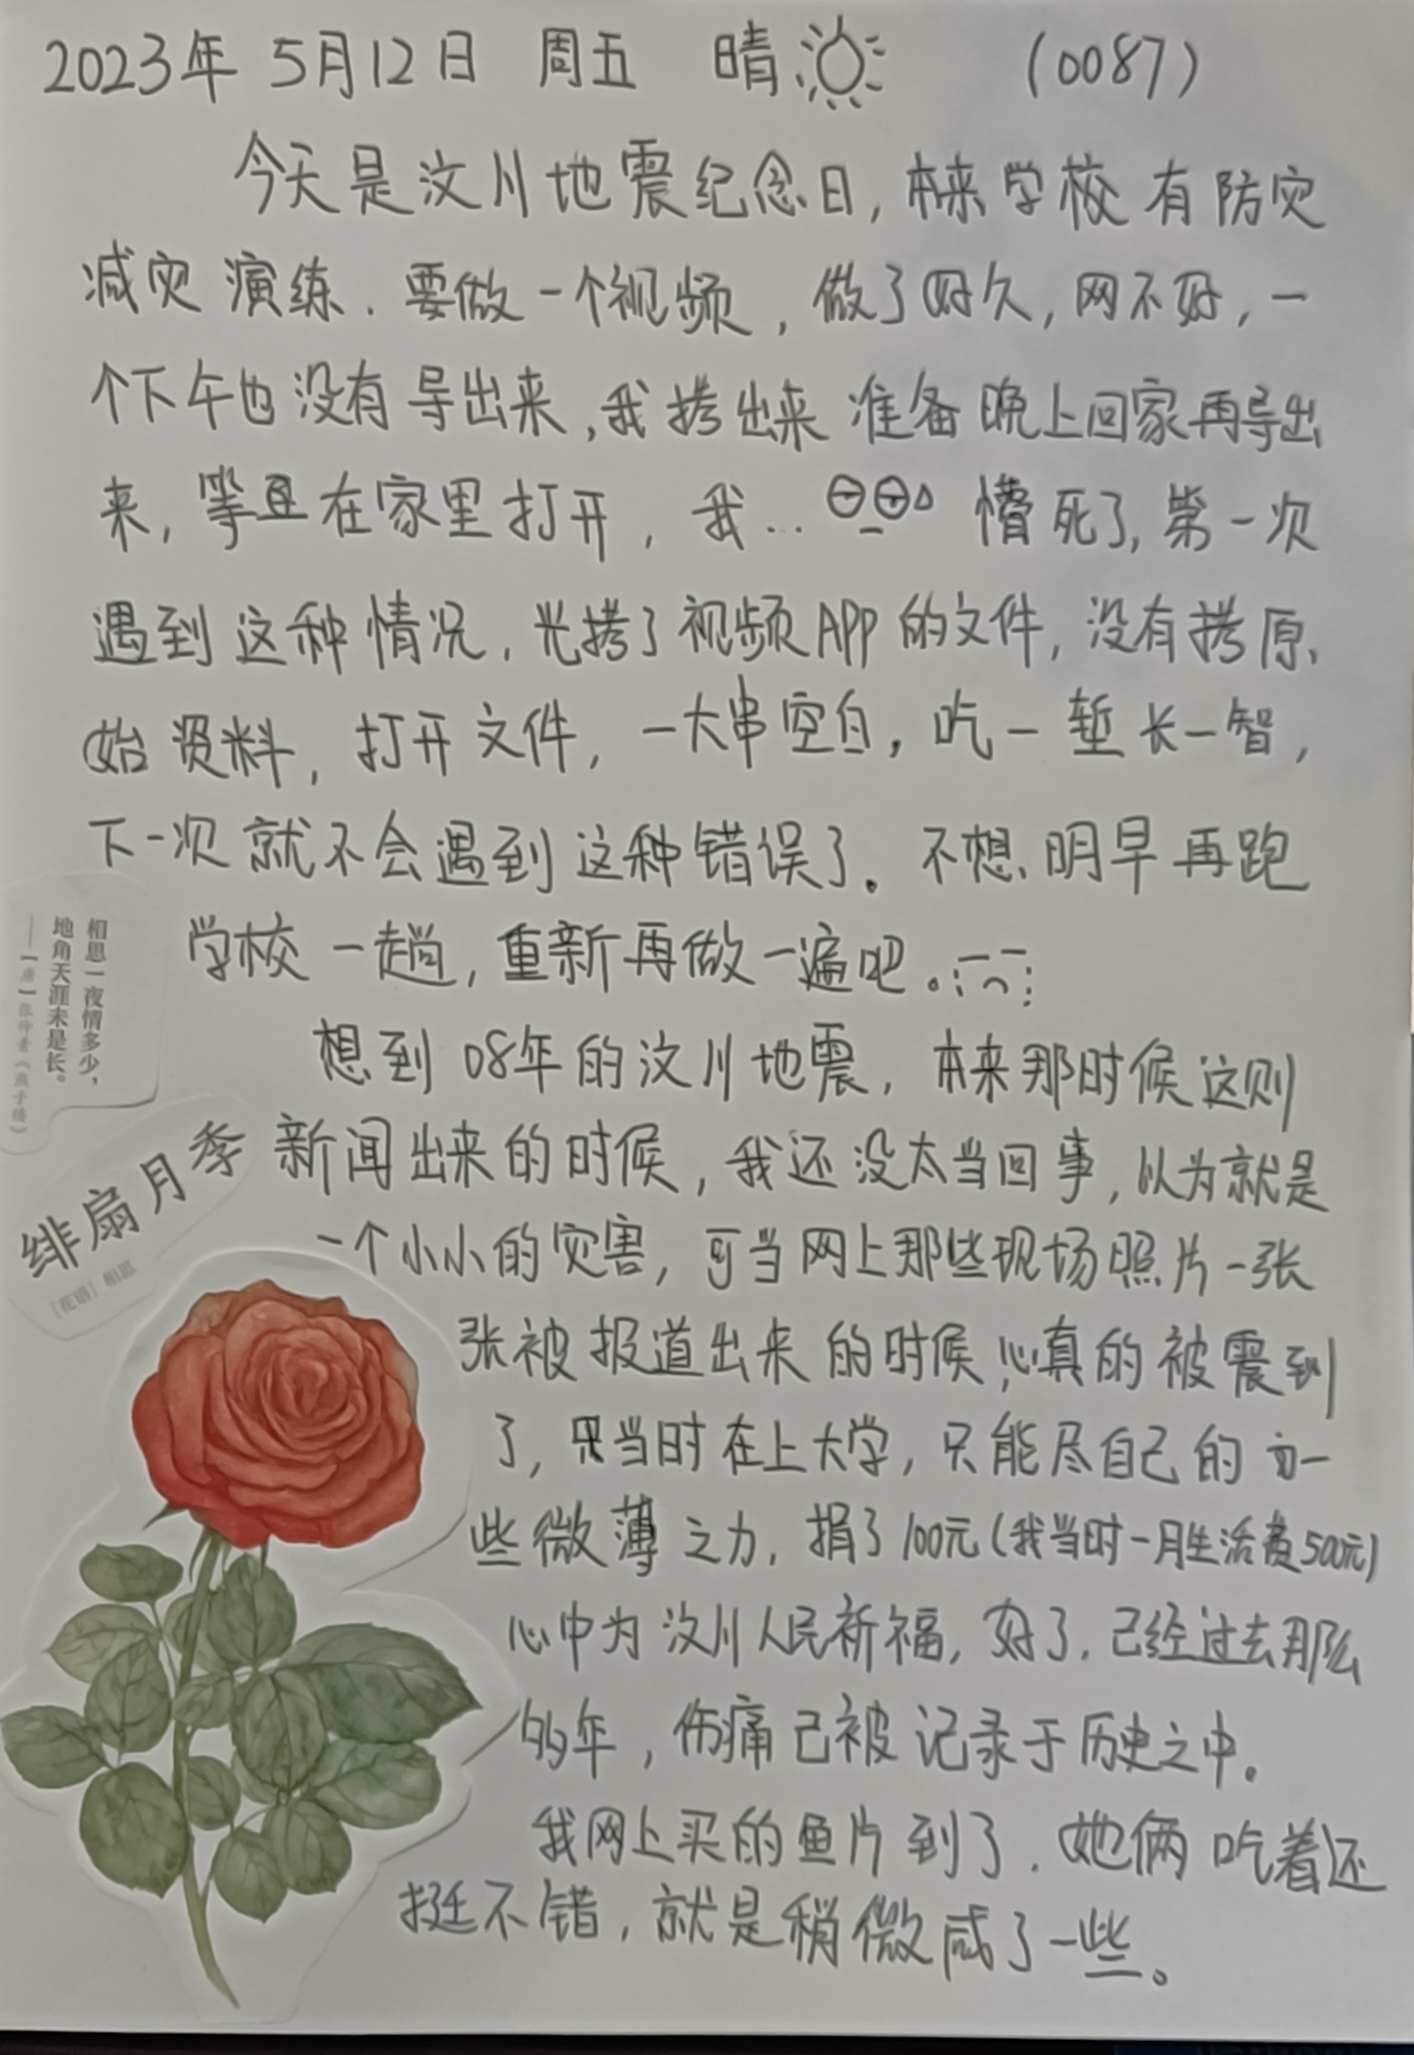 2023年 5月12日 周五 晴 (0087)
今天是汶川地震纪念日,本来学校有防灾
减灾演练.要做一个视频,做了好久,网不好,一
个下午也没有导出来,我拷出来准备晚上回家再导出
来,等且在家里打开,我... 懵死了,第一次
遇到这种情况,光拷了视频APP的文件,没有拷原
始资料,打开文件,一大串空白,吃一堑长一智,
下一次就不会遇到这种错误了。不想明早再跑
学校一趟,重新再做一遍吧。
想到08年的汶川地震,本来那时候这则
新闻出来的时候,我还没太当回事,以为就是
一个小小的灾害,可当网上那些现场照片一张
张被报道出来的时候,心真的被震到
了,只当时在上大学,只能尽自己的一
些微薄之力,捐了100元(我当时一月生活费500元)
心中为汶川人民祈福,好了,已经过去那么
多年,伤痛已被记录于历史之中。
我网上买的鱼片到了.她俩吃着还
挺不错,就是稍微咸了一些。
相思一夜情多少,
地角天涯未是长。
——【唐】张仲素《燕子楼》
绯扇月季
[花语] 相思